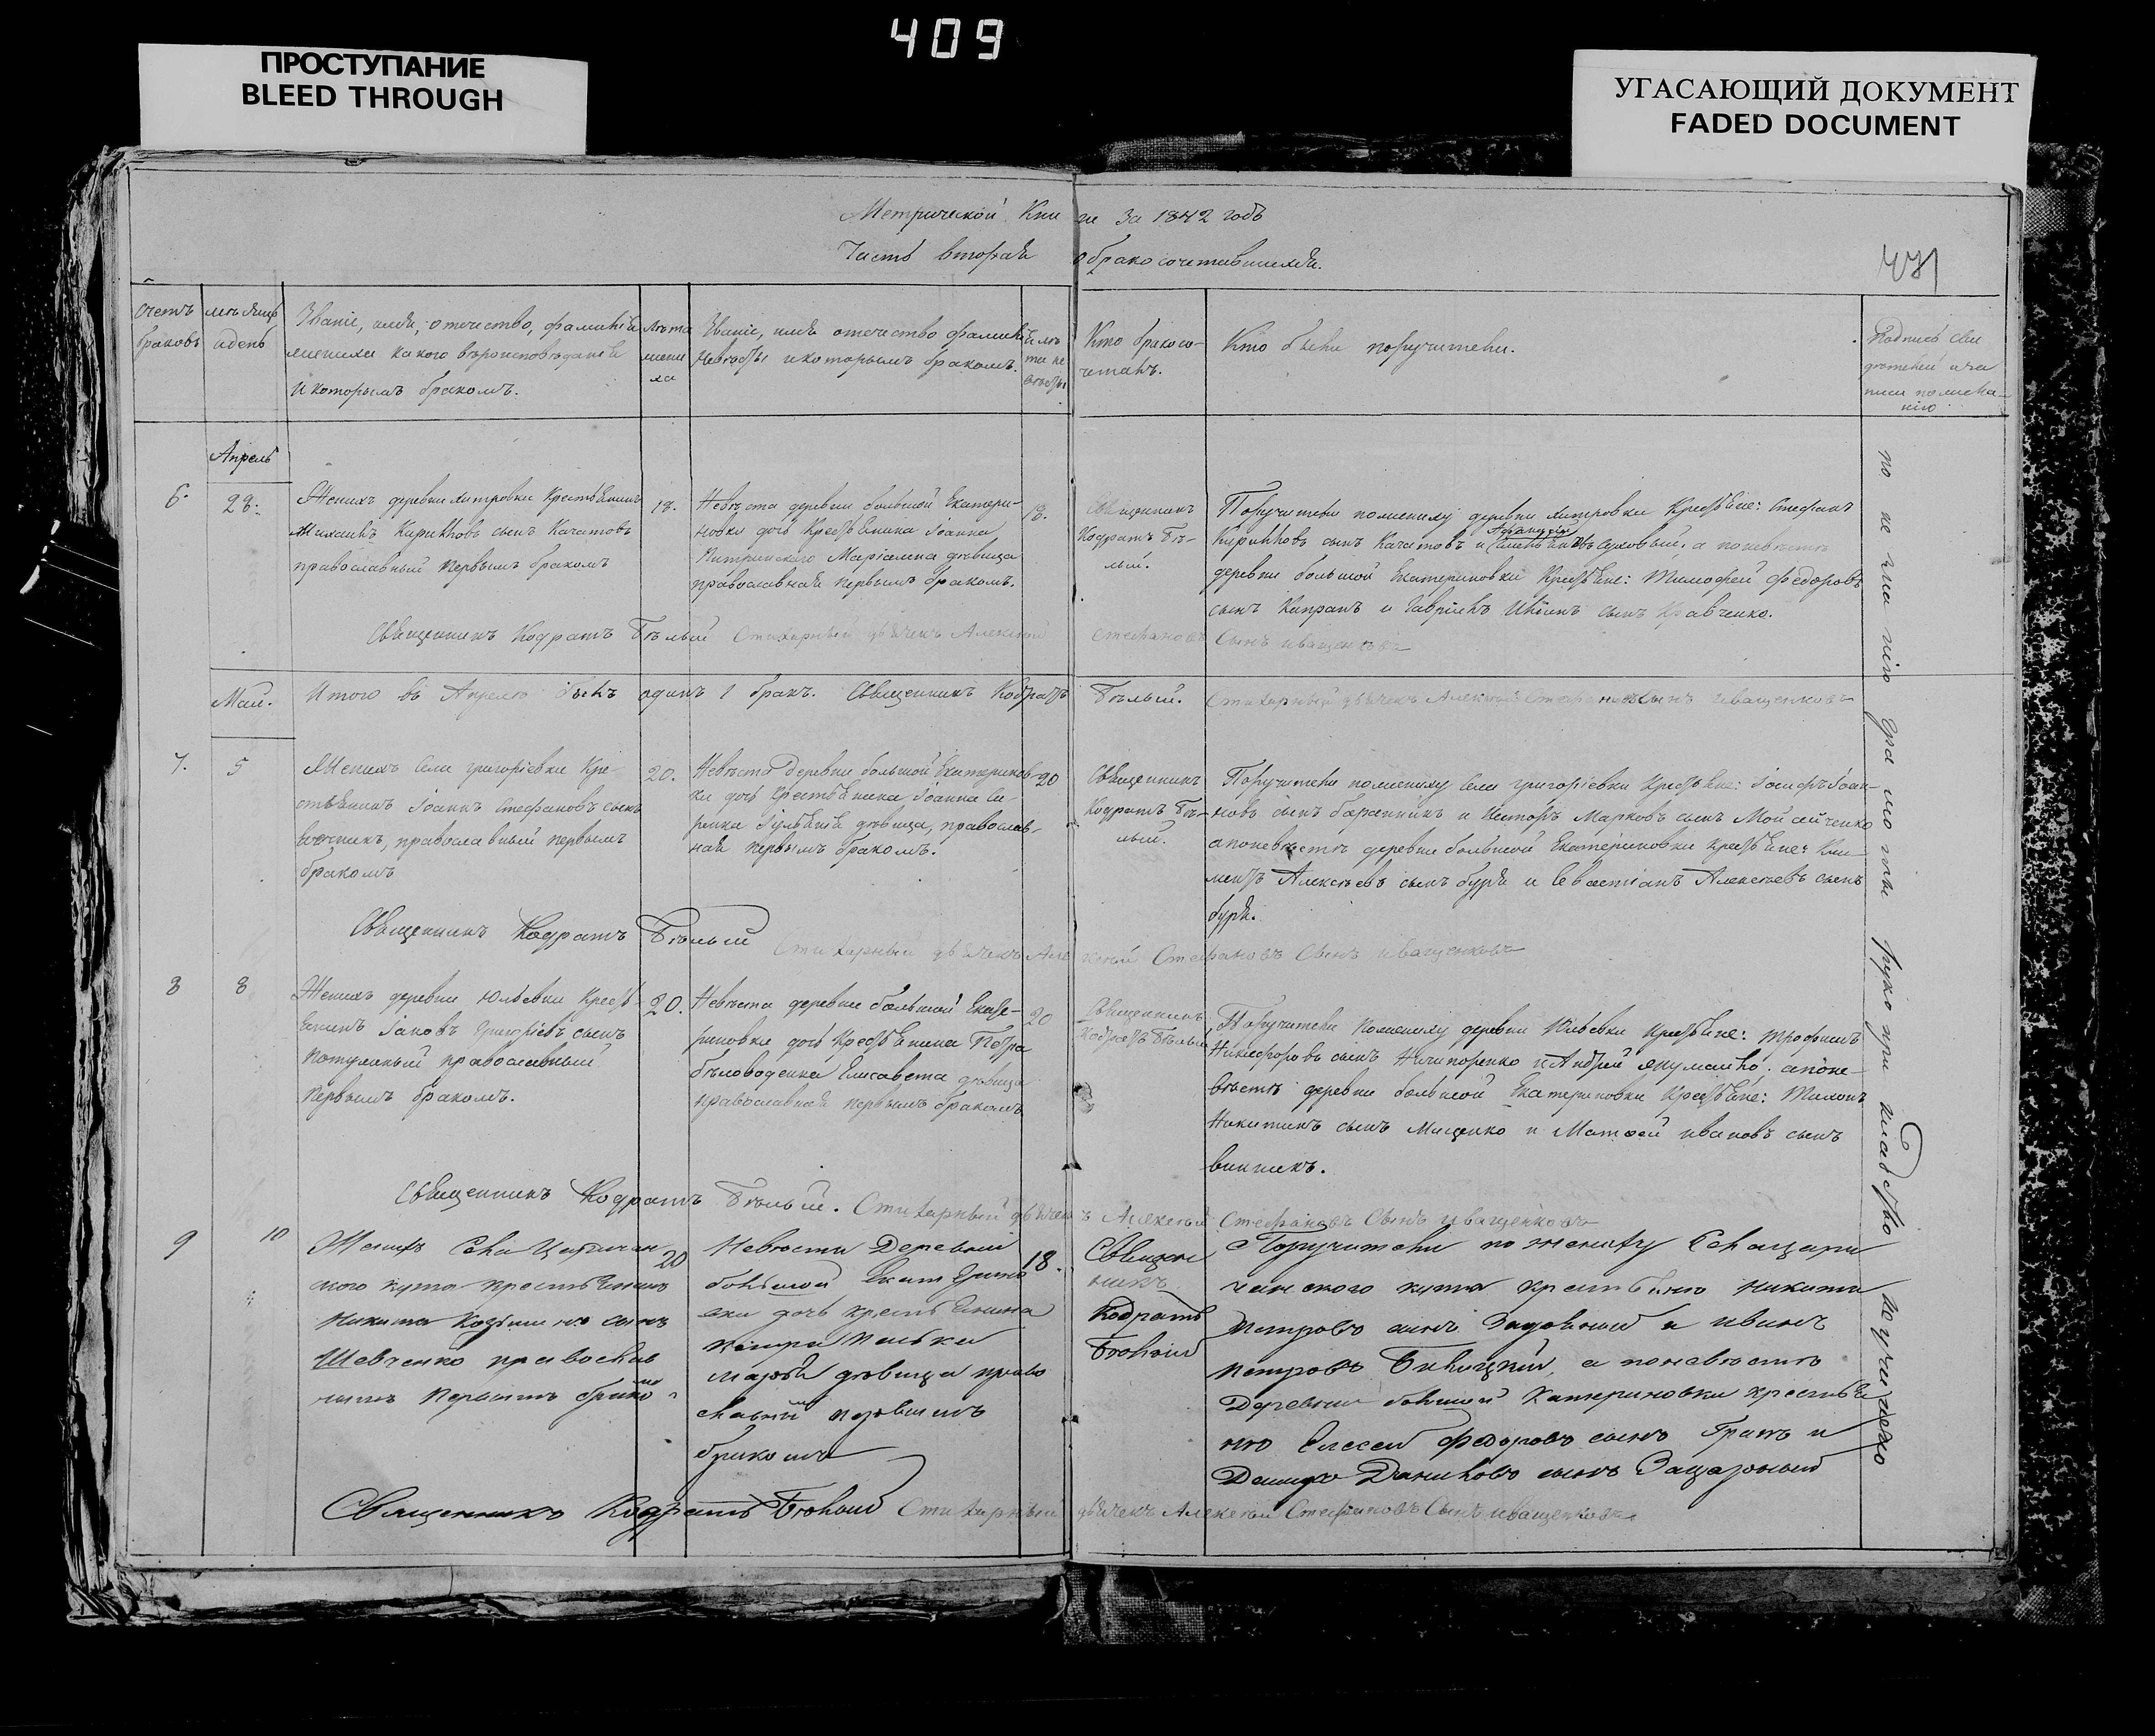 409
ПРОСТУПАНИЕ
BLEED THROUGH
УГАСАЮЩИЙ ДОКУМЕНТ
FADED DOCUMENT
Метрической Книге За 1842 годъ
Часть вторая о бракосочетавшихся.
Счетъ браковъ
мѣсяцъ и день
Званіе, имя, отечество, фамилія
жениха какого вѣроисповѣданія
и которымъ бракомъ.
Лѣта жениха
Званіе, имя отечество фамилія
невѣсты и которымъ бракомъ.
лѣта невѣсты
Кто бракосочеталъ.
Кто были поручители.
Подпись свидѣтелей и записи по желанію
Апрель
6.
28.
Женихъ деревни Митровки Крестьянинъ
Михаилъ Кирилловъ сынъ Качатовъ
православный первымъ бракомъ
18.
Невѣста деревни большой Екатери-
новки дочь Крестьянина Іоанна
Маріамна дѣвица
православная первымъ бракомъ.
18.
Священникъ
Кодратъ Бѣ-
лый.
Поручители по жениху деревни Митровки Крестьяне: Стефанъ
Кирилловъ сынъ Качатовъ и а по невѣстѣ
деревни большой Екатериновки Крестьяне: Тимофей Федоровъ
сынъ Капранъ и Гавріилъ Ильинъ сынъ Кравченко.
Священникъ Кодратъ Бѣлый Стихарный дьячекъ Алексѣй Стефановъ Сынъ иващенковъ
Май.
Итого въ Апрелѣ былъ одинъ 1 бракъ. Священникъ Кодратъ Бѣлый. Стихарный дьячекъ Алексѣй Стефановъ Сынъ иващенковъ
7.
5
Женихъ села григоріевки Кре-
стьянинъ Іоаннъ Стефановъ сынъ
православный первымъ
бракомъ
20.
Невѣста деревни большой Екатеринов-
ки дочь Крестьянина Іоанна Си-
рика Іуліянія дѣвица, православ-
ная первымъ бракомъ.
20
Священникъ
Кодратъ Бѣ-
лый.
Поручители по жениху села григоріевки Крестьяне: Іосифъ Іоан-
новъ сынъ баранникъ и Несторъ Марковъ сынъ Мойсейченко
а по невѣстѣ деревни большой Екатериновки Крестьяне: Кли-
ментъ Алексѣевъ сынъ буря и Севастіанъ Алексѣевъ сынъ
буря.
Священникъ Кодратъ Бѣлый Стихарный дьячекъ Алексѣй Стефановъ Сынъ иващенковъ
8
8
Женихъ деревни Юльевки Крестья-
янинъ Іаковъ Григоріевъ сынъ
православный
первымъ бракомъ.
20.
Невѣста деревни большой Екате-
риновки дочь Крестьянина Петра
бѣловоденка Елисавета дѣвица
православная первымъ бракомъ
20
Священникъ
Кодратъ Бѣлый
Поручители по жениху деревни Юльевки Крестьяне: Трофимъ
Никифоровъ сынъ Ничипоренко и Андрей а по не-
вѣстѣ деревни большой Екатериновки Крестьяне: Тихонъ
Никитинъ сынъ Мищенко и Матѳей ивановъ сынъ
винникъ.
Священникъ Кодратъ Бѣлый. Стихарный дьячекъ Алексѣй Стефановъ Сынъ иващенковъ
9
10
Женихъ Села Царичан
ского кута крестьянинъ
Никита Козминъ сынъ
Шевченко православ
ныи первымъ бракомъ
20
Невѣста Деревни
большой Екатерино
вки дочь крестьянина
марѳа дѣвица право
славный первымъ
бракомъ
18.
Священ
никъ
Кодратъ
Бѣлый
Поручители по жениху Села цари
чанского кута крестьяне Никита
Петровъ сынъ и иванъ
Петровъ Билицкий, а по невѣстѣ
Деревни большой Катериновки крестья
не Елесей Федоровъ сынъ и
Демидъ Даниловъ сынъ
Священникъ Кодратъ Бѣлый Стихарный дьячекъ Алексѣй Стефановъ Сынъ иващенковъ